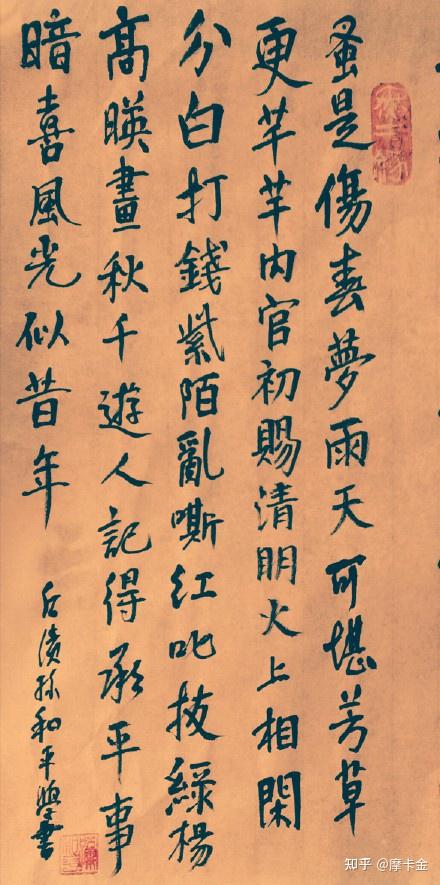 蚤是傷春夢雨天可堪芳草
更芊芊内官初賜清明火上相閑
分白打錢紫陌亂嘶紅叱拔綠楊
高暎畫秋千遊人記得承平事
暗喜風光似昔年
孫和平學書
知乎 @摩卡金